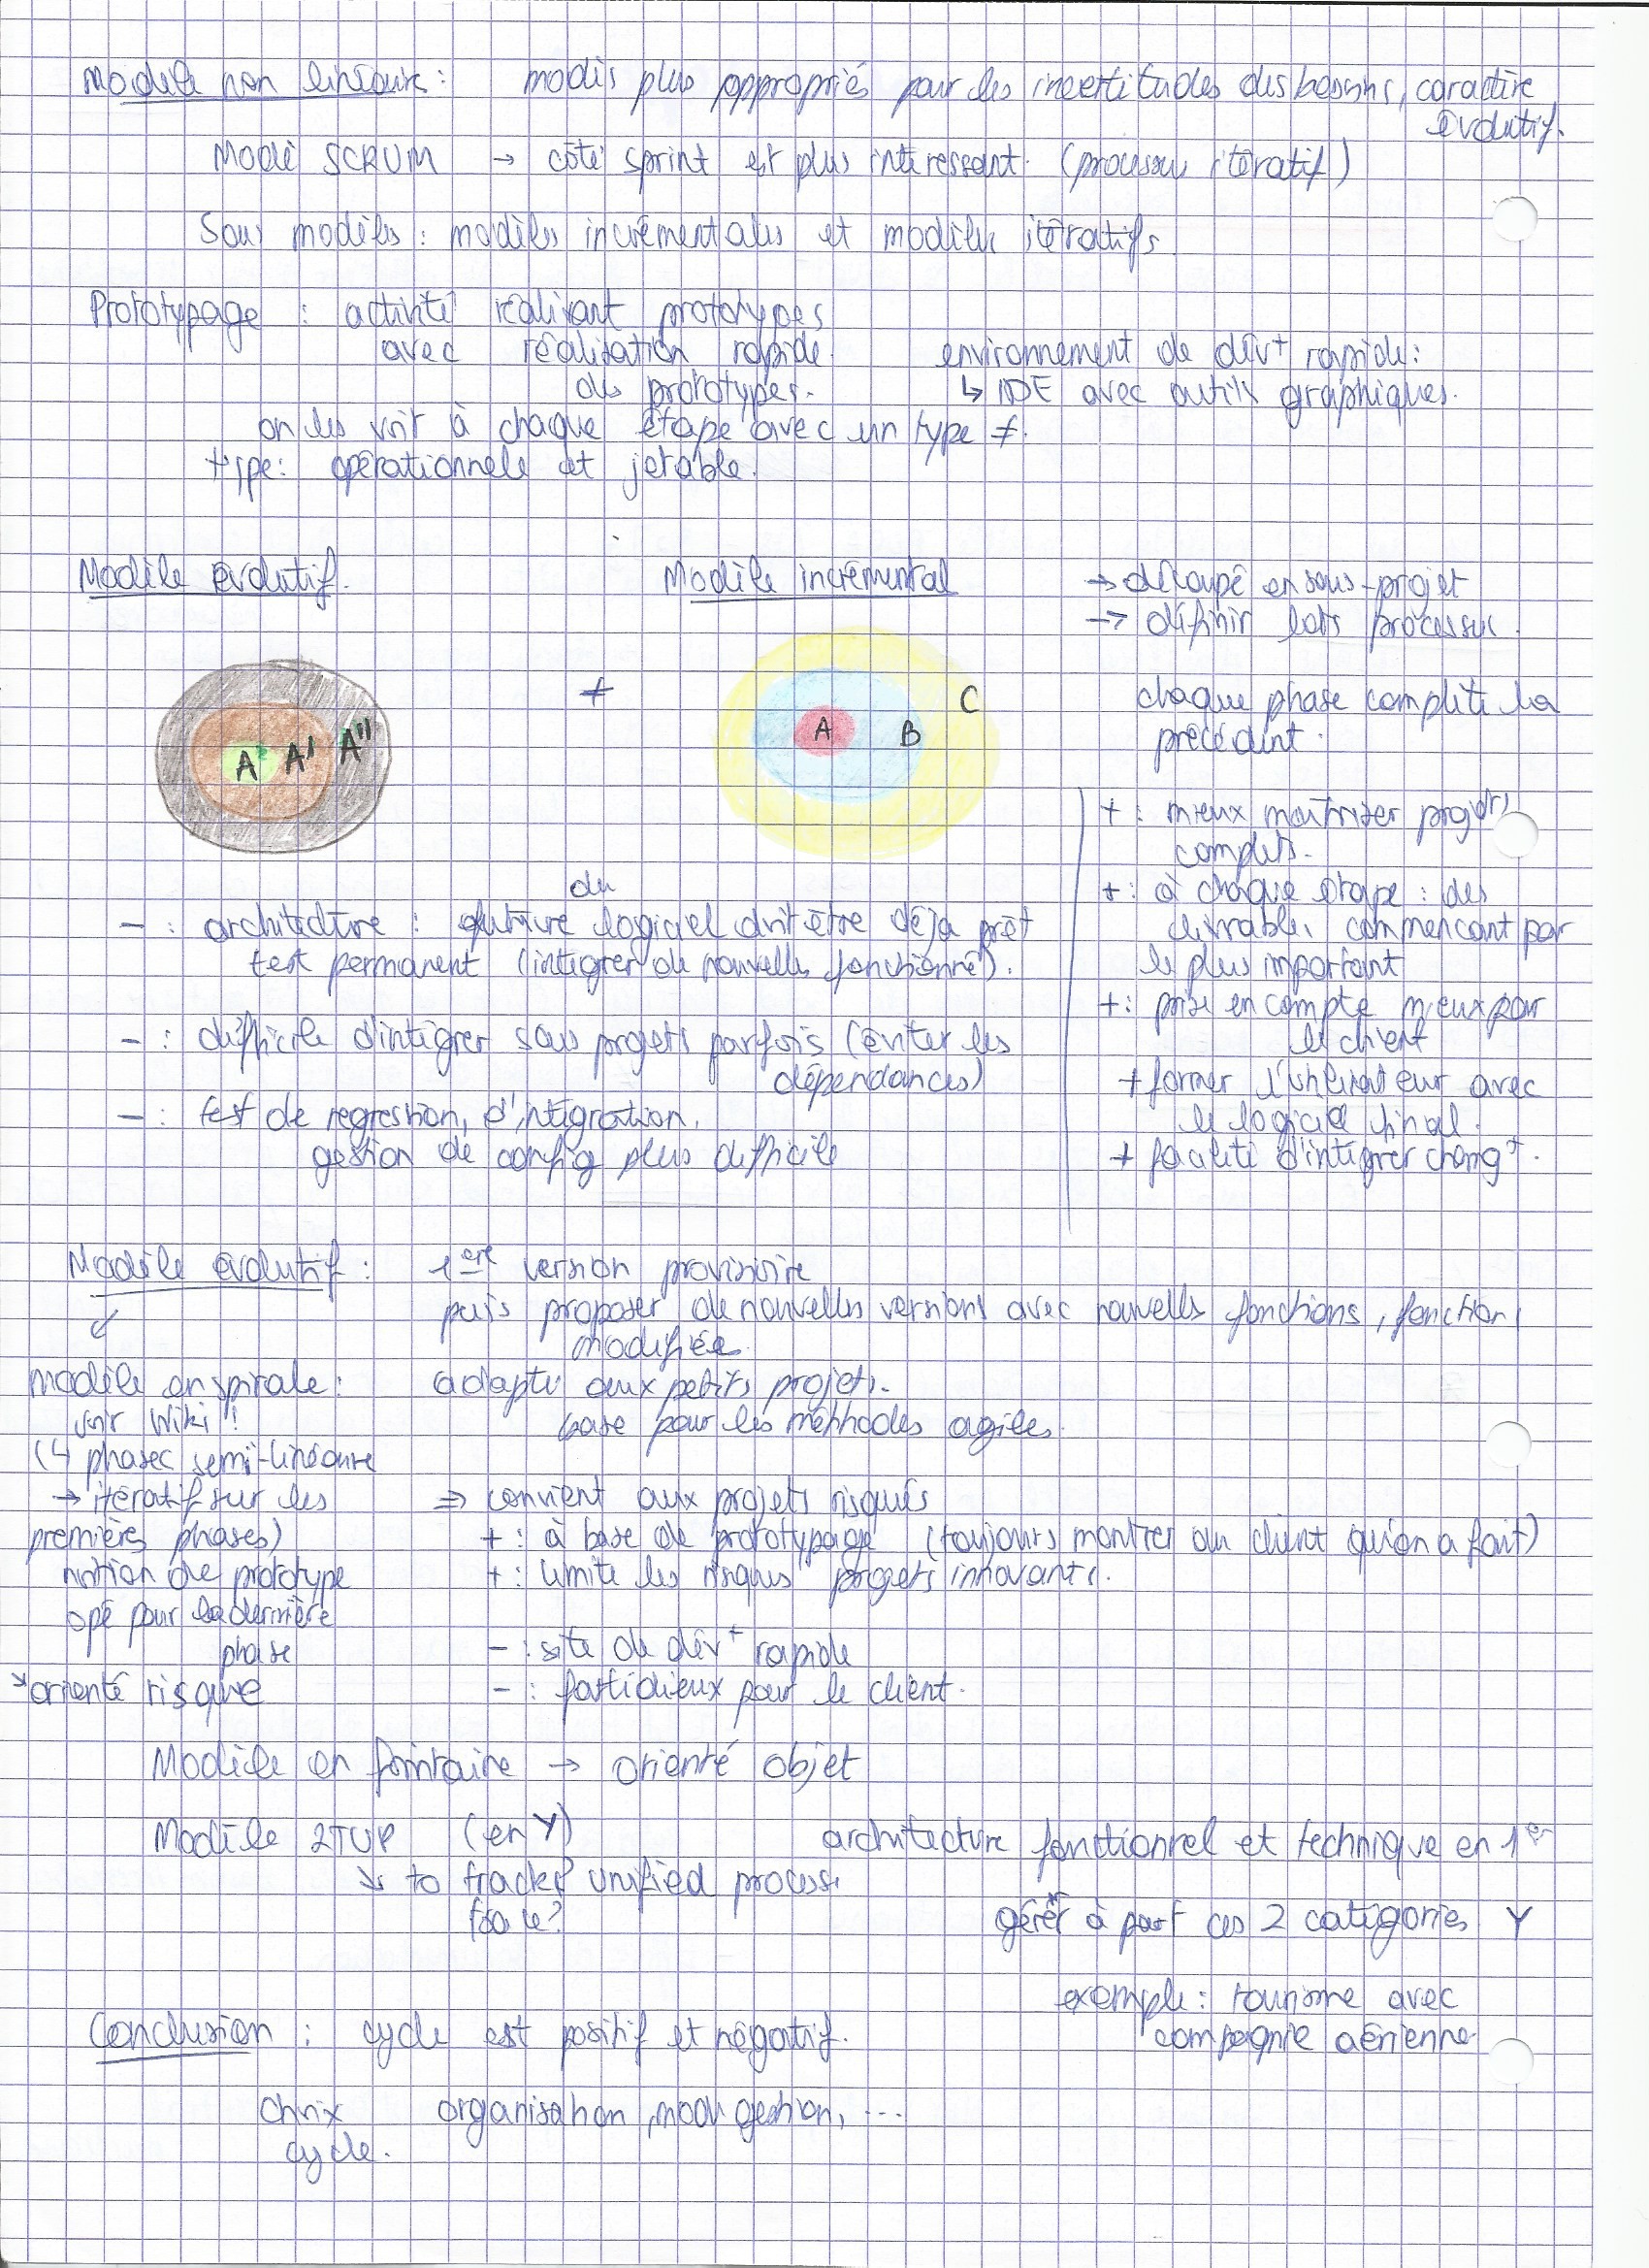 Modèle non linéaire : modèls plus approprié pour les incertitudes des besoins, caractère
évolutif.
Modè SCRUM → côté sprint est plus intéressant. (processus itératif)
Sous modèles : modèles incrémentales et modèles itératifs
Prototypage : activité réalisant prototypes
avec réalisation rapide
des prototypes.
environnement de dévt rapide :
↳ IDE avec outils graphiques.
on les voit à chaque étape avec un type ≠.
type : opérationnele et jetable.
Modèle évolutif.
A A' A''
≠
Modèle incrémental
A B C
→ découpé en sous-projet
→ définir lots processus.
chaque phase complète la
précédent.
+ : mieux maîtriser projets
complets.
+ : à chaque étape : des
livrables, commençant par
les plus important
+ : prise en compte mieux par
le client
+ former l'utilisateur avec
le logiciel final.
+ facilité d'intégrer changt.
du
- : architecture : future logiciel doit être déjà prêt
test permanent (intégrer de nouvelles fonctionné).
- : difficile d'intégrer sous projets parfois (éviter les
dépendances)
- : test de regression, d'intégration,
gestion de config plus difficile
Modèle évolutif : 1ère version provisoire
puis proposer de nouvelles versions avec nouvelles fonctions, fonctions
modifiée
modèle en spirale :
voir Wiki !
(4 phases semi-linéaire
→ itératif sur les
premières phases)
notion de prototype
opé pour la dernière
phase
* orienté risque
adapté aux petits projets.
base pour les méthodes agiles.
⇒ convient aux projets risqués
+ : à base de prototypage (toujours montrer au client qu'on a fait)
+ : limite les risques projets innovants.
- : site de dévt rapide
- : fastidieux pour le client.
Modèle en fontaine → orienté objet
Modèle 2TUP (en Y)
↘ to tracks unified process
architecture fonctionnel et technique en 1er
gérer à part ces 2 catégories Y
exemple : tourisme avec
compagnie aérienne
Conclusion : cycle est positif et négatif.
Choix
cycle.
organisation, gestion, ...